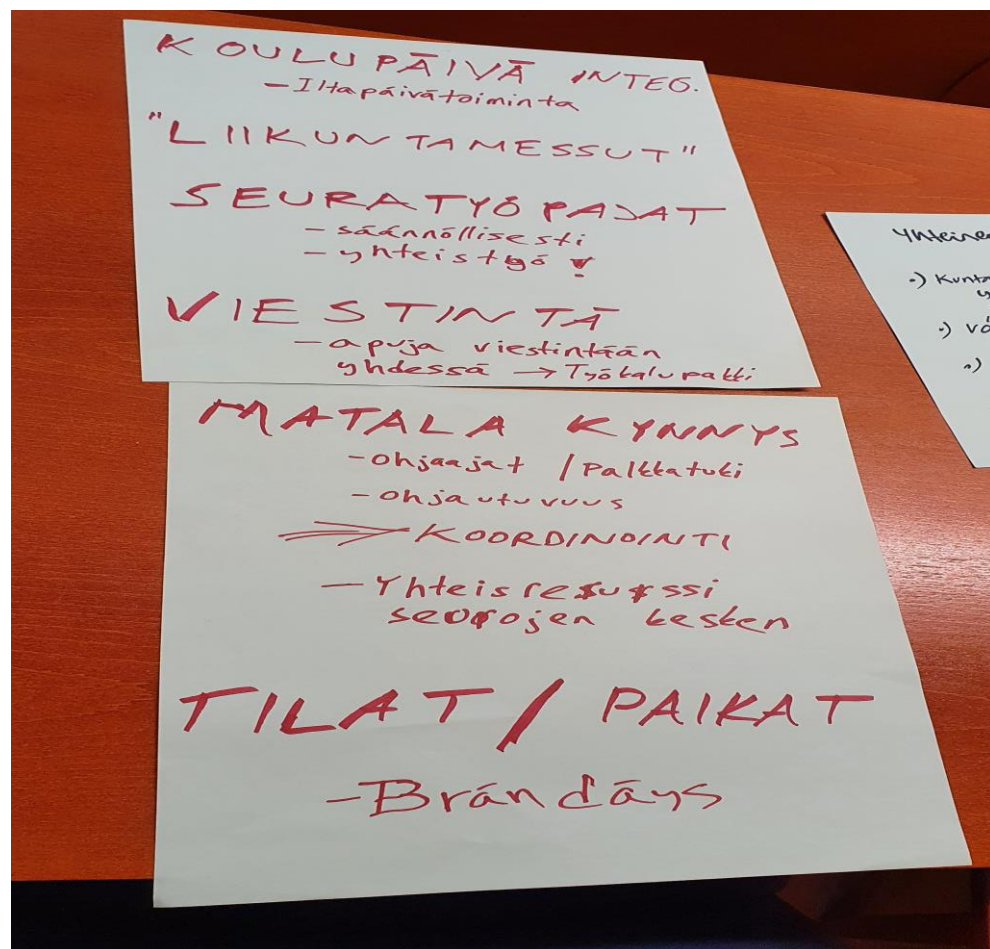 KOULUPÄIVÄ INTEG.
- Iltapäivätoiminta
"LIIKUNTAMESSUT"
SEURATYÖPAJAT
- säännöllisesti
- yhteistyö !
VIESTINTÄ
- apuja viestintään
yhdessä → Työkalupakki
MATALA KYNNYS
- ohjaajat / Palkkatuki
- ohjautuvuus
⇒ KOORDINOINTI
- Yhteisresurssi
seurojen kesken
TILAT / PAIKAT
- Brändäys
Yhteine
•) Kunta
•) vä
•)